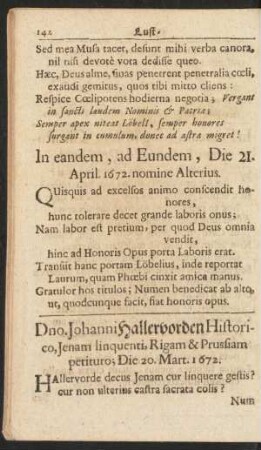 142 Lust.
Sed mea Musa tacet, desunt mihi verba canora,
nil nisi devotè vota dedisse queo.
Hæc, Deus alme, suas penetrent penetralia cœli,
exaudi gemitus, quos tibi mitto cliens:
Respice Cœlipotens hodierna negotia; Vergant
in sancti laudem Nominis & Patriæ;
Semper apex niteat Löbeli, semper honores
surgant in cumulum, donec ad astra migret!
In eandem, ad Eundem, Die 21.
April. 1672. nomine Alterius.
QUisquis ad excelsos animo conscendit ho-
nores,
hunc tolerare decet grande laboris onus;
Nam labor est pretium, per quod Deus omnia
vendit,
hinc ad Honoris Opus porta Laboris erat.
Transiit hanc portam Löbelius, inde reportat
Laurum, quam Phœbi cinxit amica manus.
Gratulor hos titulos; Numen benedicat ab alto,
ut, quodcunque facit, fiat honoris opus.
Dno. Johanni Hallervorden Histori-
co, Jenam linquenti, Rigam & Prussiam
petituro, Die 20. Mart. 1672.
HAllervorde decus Jenam cur linquere gestis?
cur non ulterius castra sacrata colis?
Num